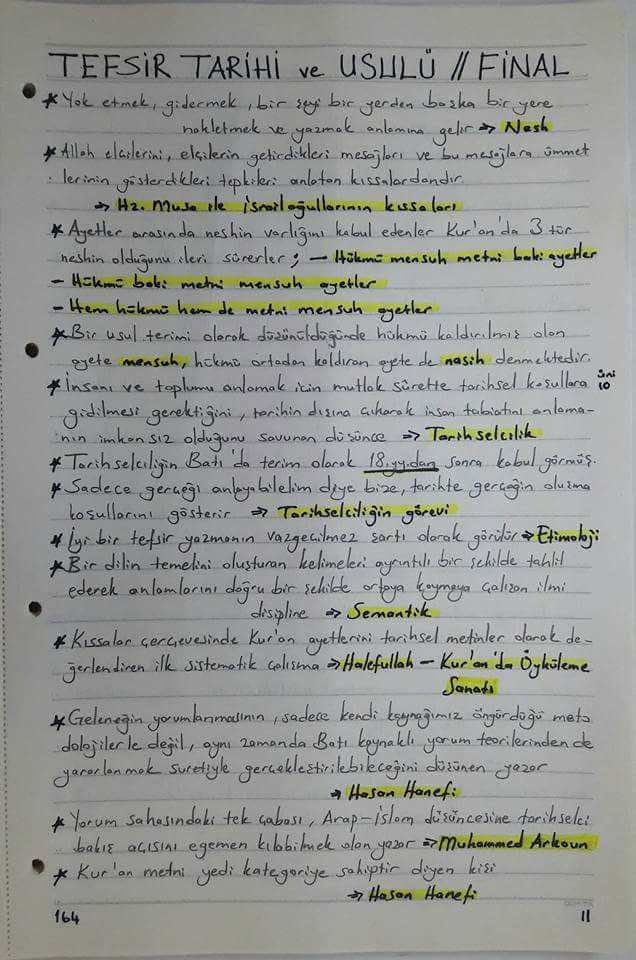 TEFSİR TARİHİ ve USULÜ // FİNAL
* Yok etmek, gidermek, bir şeyi bir yerden başka bir yere
nakletmek ve yazmak anlamına gelir => Nesh
* Allah elçilerini, elçilerin getirdikleri mesajları ve bu mesajlara ümmet
lerinin gösterdikleri tepkileri anlatan kıssalardandır.
=> Hz. Musa ile İsrailoğullarının kıssaları
* Ayetler arasında neshin varlığını kabul edenler Kur'an'da 3 tür
neshin olduğunu ileri sürerler; - Hükmü mensuh metni baki ayetler
- Hükmü baki metni mensuh ayetler
- Hem hükmü hem de metni mensuh ayetler
* Bir usul terimi olarak düşünüldüğünde hükmü kaldırılmış olan
ayete mensuh, hükmü ortadan kaldıran ayete de nasih denmektedir.
* İnsanı ve toplumu anlamak için mutlak sûrette tarihsel koşullara
üni 10
gidilmesi gerektiğini, tarihin dışına çıkarak insan tabiatını anlama-
nın imkansız olduğunu savunan düşünce => Tarihselcilik
* Tarihselciliğin Batı'da terim olarak 18.yy.dan sonra kabul görmüş.
* Sadece gerçeği anlayabilelim diye bize, tarihte gerçeğin oluşma
koşullarını gösterir => Tarihselciliğin görevi
* İyi bir tefsir yazmanın vazgeçilmez şartı olarak görülür => Etimoloji
* Bir dilin temelini oluşturan kelimeleri ayrıntılı bir şekilde tahlil
ederek anlamlarını doğru bir şekilde ortaya koymaya çalışan ilmi
disipline => Semantik
* Kıssalar çerçevesinde Kur'an ayetlerini tarihsel metinler olarak de-
ğerlendiren ilk sistematik çalışma => Halefullah - Kur'an'da Öyküleme
Sanatı
* Geleneğin yorumlanmasının, sadece kendi kaynağımız öngürdüğü meto
dolojilerle değil, aynı zamanda Batı kaynaklı yorum teorilerinden de
yararlanmak suretiyle gerçekleştirilebileceğini düşünen yazar
=> Hasan Hanefi
* Yorum sahasındaki tek çabası, Arap-İslam düşüncesine tarihselci
bakış açısını egemen kılabilmek olan yazar => Muhammed Arkoun
* Kur'an metni yedi kategoriye sahiptir diyen kişi
=> Hasan Hanefi
164
11